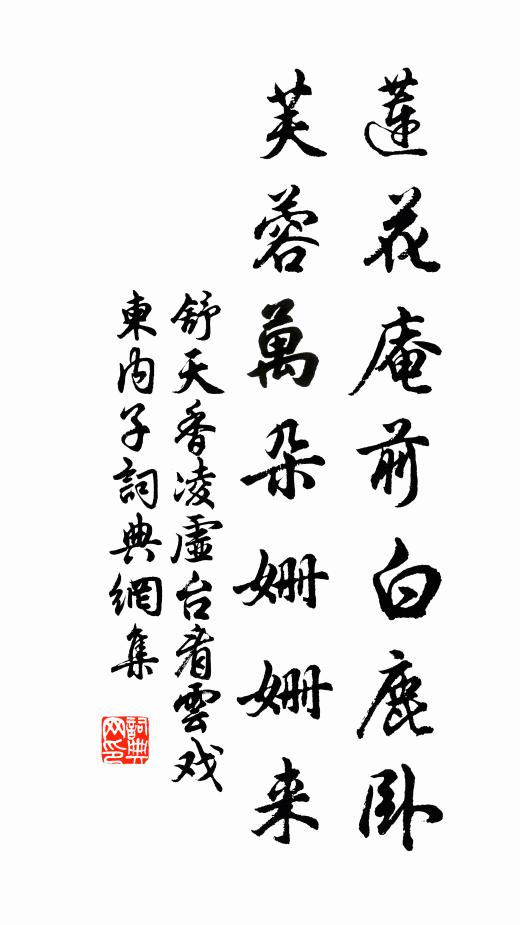 蓮花庵前白鹿卧
芙蓉萬朵姍姍来
舒天香凌虛台看雲戏
東内子詞典網集
詞典网印